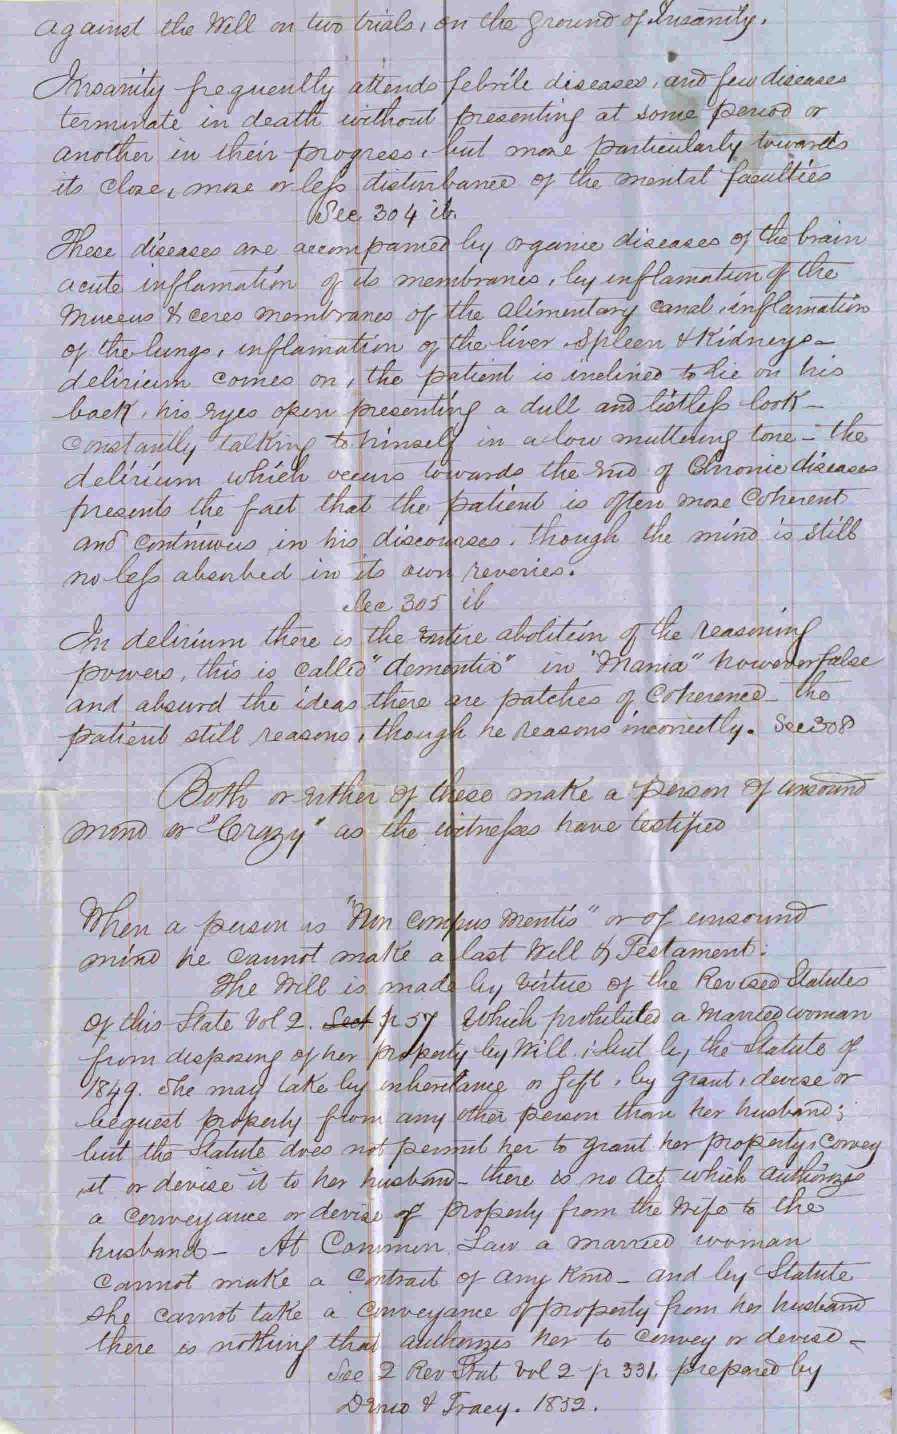 against the Will on two trials, on the ground of Insanity.
Insanity frequently attends febrile diseases, and few diseases
terminate in death without presenting at some period or
another in their progress, but more particularly towards
its close, more or less disturbance of the mental faculties
Sec 304 ib.
These diseases are accompanied by organic diseases of the brain
acute inflamation of its membranes, by inflamation of the
Mucous & ceres membranes of the alimentary canal, inflamation
of the lungs, inflamation of the liver Spleen & Kidneys –
delirium comes on, the patient is inclined to lie on his
back, his eyes open presenting a dull and listless look –
constantly talking to himself in a low muttering tone – the
delirium which occurs towards the end of Chronic diseases
presents the fact that the patient is often more coherent
and continuous in his discourses, though the mind is still
no less absorbed in its own reveries.
Sec 305 ib
In delirium there is the entire abolition of the reasoning
powers, this is called "dementia" in "Mania" however false
and absurd the ideas there are patches of Coherence – the
patient still reasons, though he reasons incorrectly. Sec 308
Both or either of these make a person of unsound
mind or "Crazy" as the witnesses have testified
When a person is "Non compus mentis" or of unsound
mind he cannot make a last Will & Testament.
The Will is made by virtue of the Revised Statutes
of this State Vol 2. Sect p 57 Which prohibited a Married woman
from disposing of her property by Will; but by the Statute of
1849. She may take by inheritance or gift, by grant, devise or
bequest property from any other person than her husband;
but the Statute does not permit her to grant her property, convey
it or devise it to her husband – there is no Act which authorizes
a conveyance or devise of property from the Wife to the
husband – At Common Law a married woman
cannot make a contract of any kind – and by Statute
she cannot take a conveyance of property from her husband
there is nothing that authorizes her to convey or devise –
See 2 Rev Stat Vol 2 p 331, prepared by
Denio & Tracy. 1852.